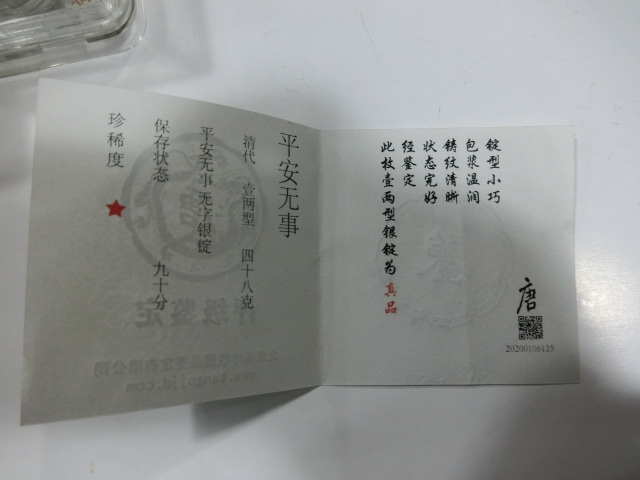 锭型小巧
包浆温润
铸纹清晰
状态完好
经鉴定
此枚壹两型银锭为真品
唐
20200106125
平安无事
清代 壹两型 四十八克
平安无事 无字银锭
保存状态 九十分
珍稀度 ★
评级鉴定